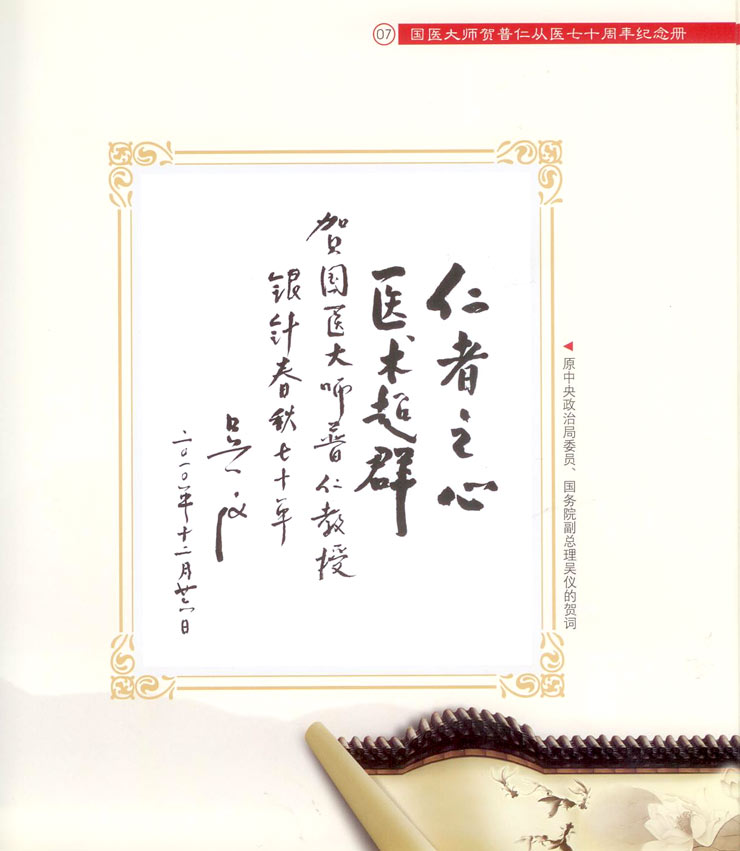 07 国医大师贺普仁从医七十周年纪念册
仁者之心
医术超群
贺国医大师普仁教授
银针春秋七十年
吴仪
二〇一〇年十二月廿六日
◀原中央政治局委员、国务院副总理吴仪的贺词